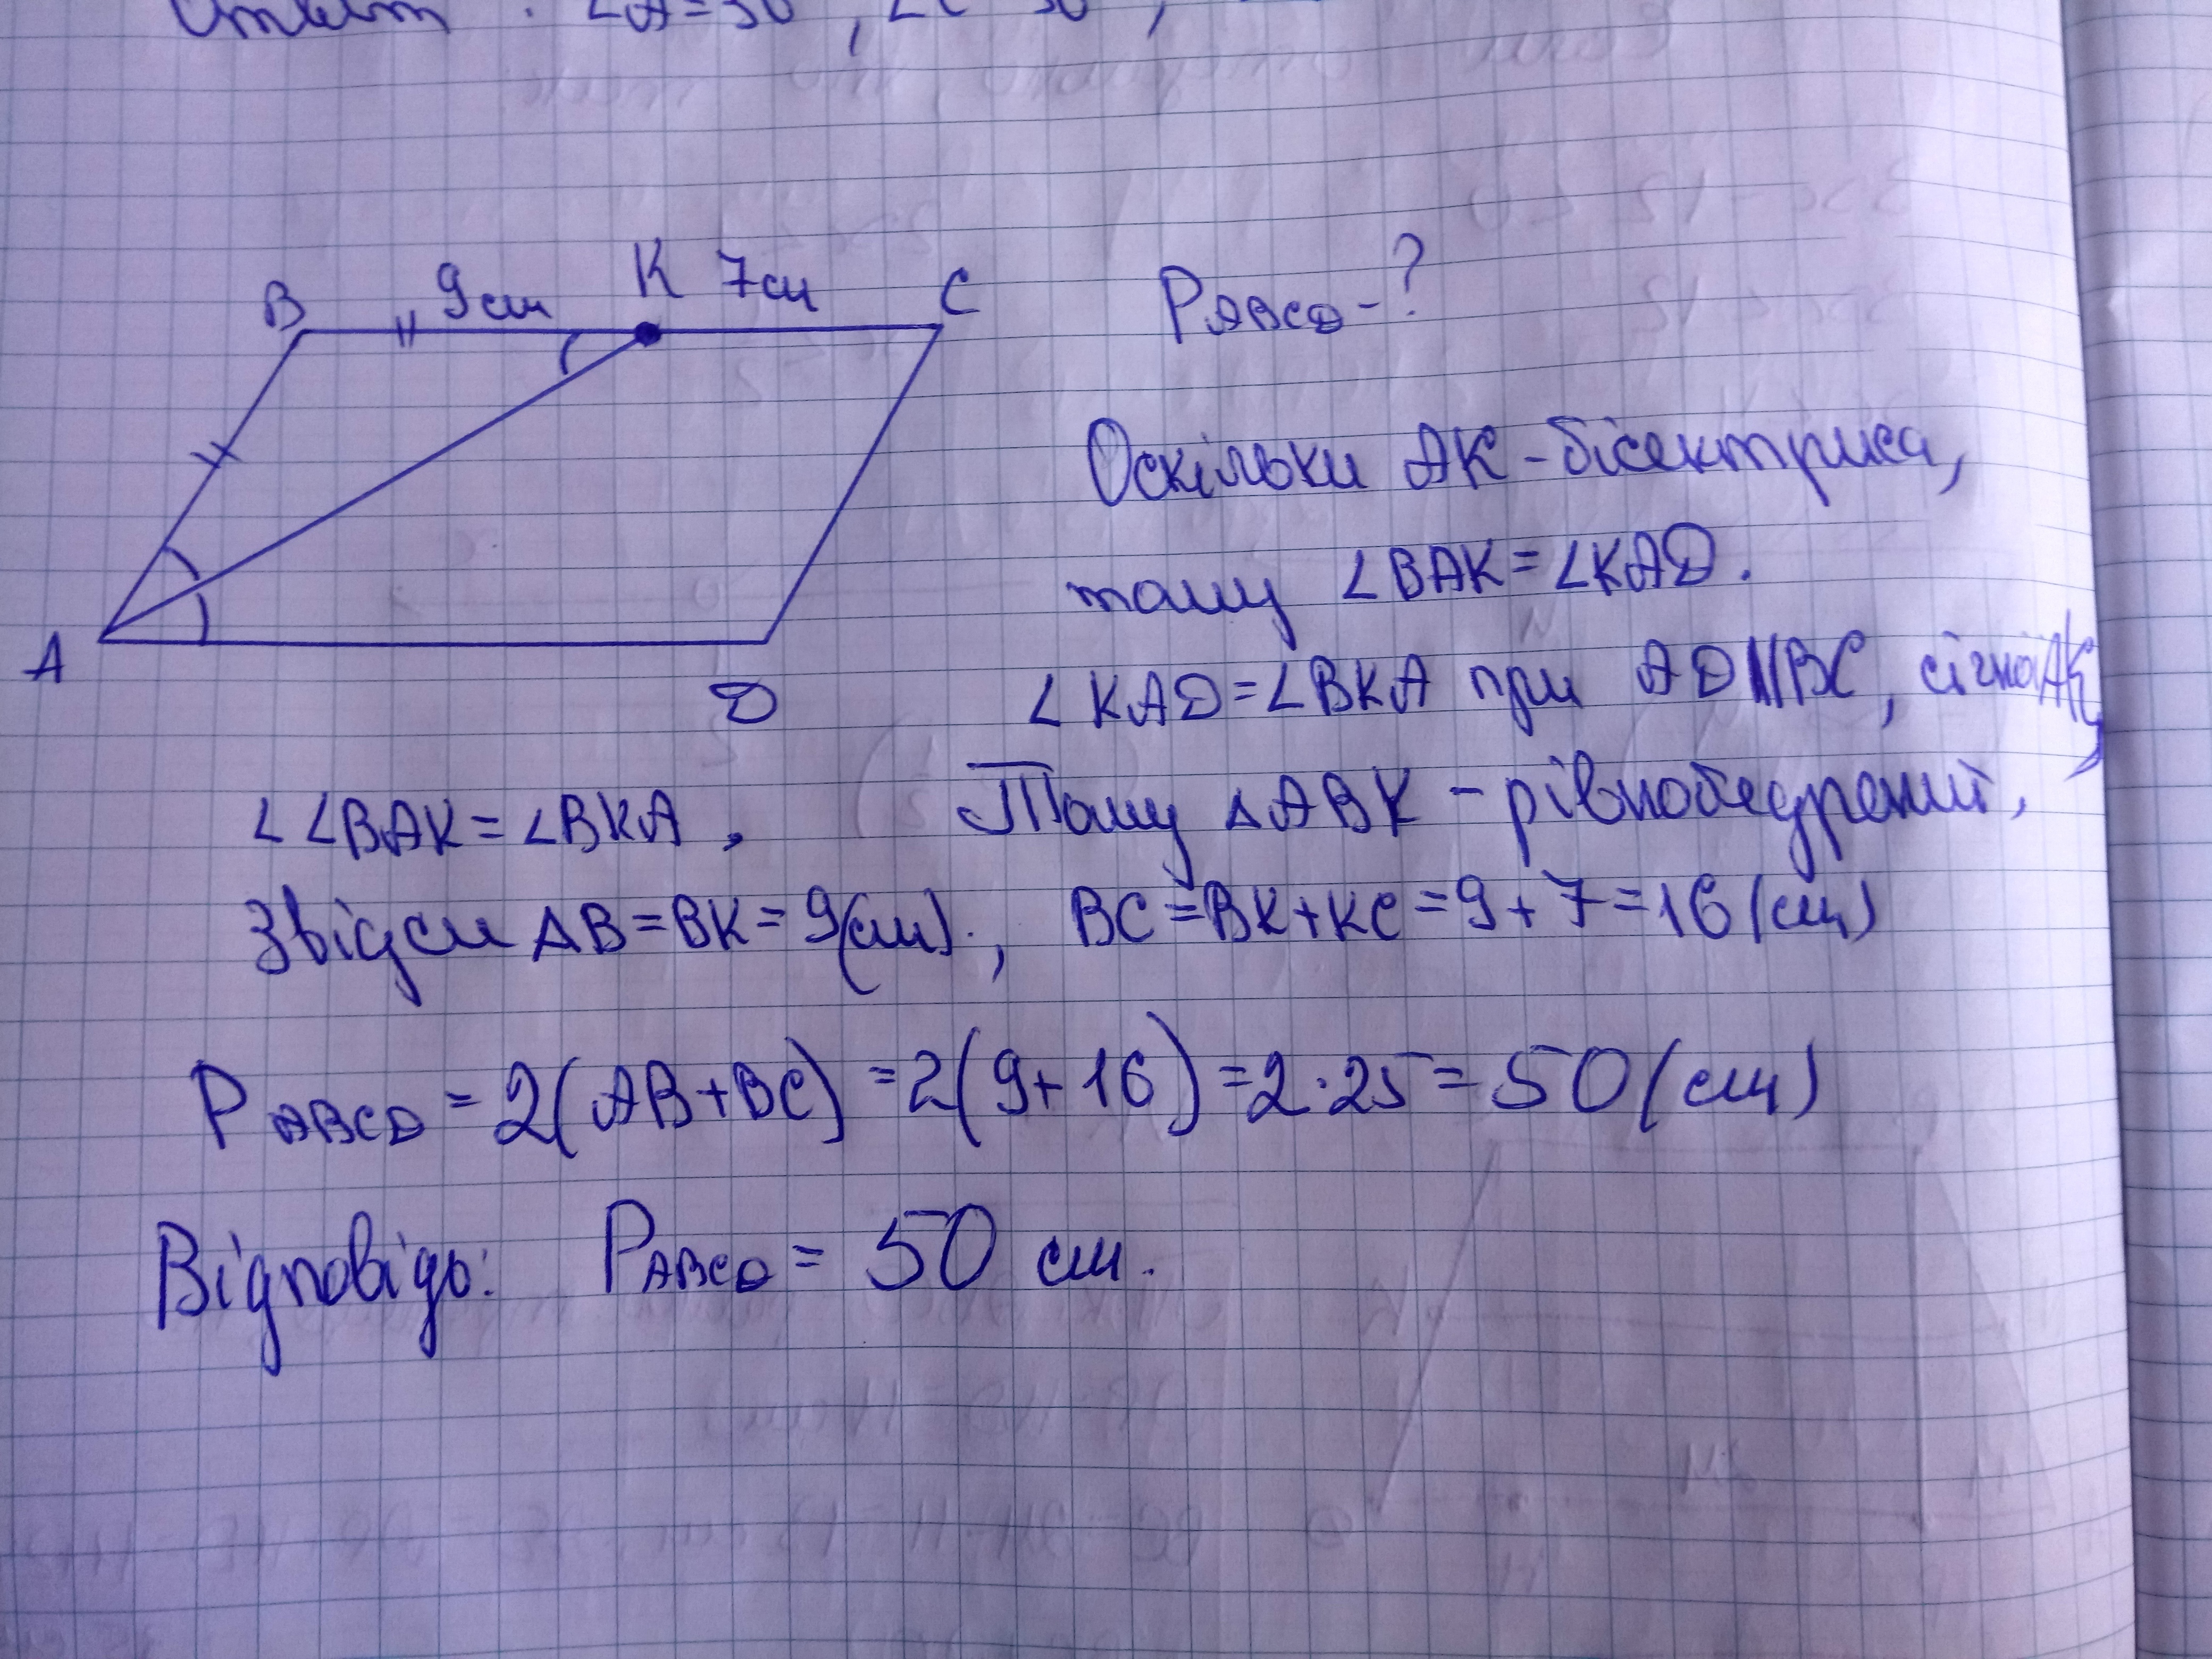 ∠A=30
B 9см K 7см C
A D
P ABCD - ?
Оскільки AK - бісектриса,
тому ∠BAK = ∠KAD.
∠KAD = ∠BKA при AD || BC, січна AK,
∠ ∠BAK = ∠BKA, Тому △ABK - рівнобедрений,
Звідси AB = BK = 9(см)., BC = BK + KC = 9 + 7 = 16 (см)
P ABCD = 2(AB + BC) = 2(9 + 16) = 2 · 25 = 50 (см)
Відповідь: P ABCD = 50 см.